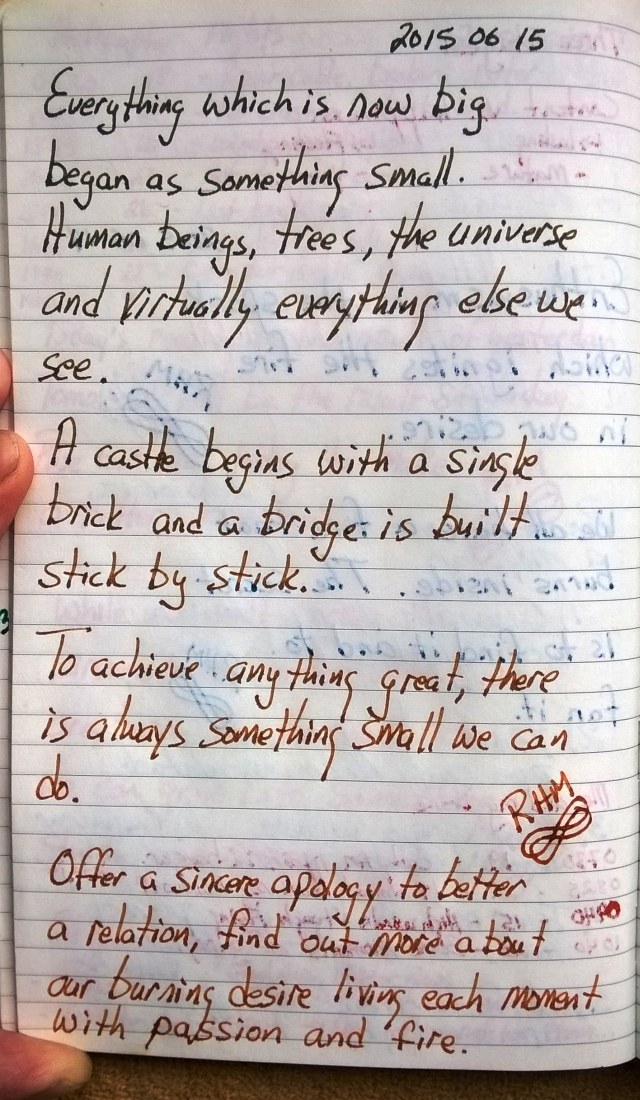 2015 06 15
Everything which is now big
began as something small.
Human beings, trees, the universe
and virtually everything else we
see.
A castle begins with a single
brick and a bridge is built
stick by stick.
To achieve anything great, there
is always something small we can
do.
RHM
Offer a sincere apology to better
a relation, find out more about
our burning desire living each moment
with passion and fire.